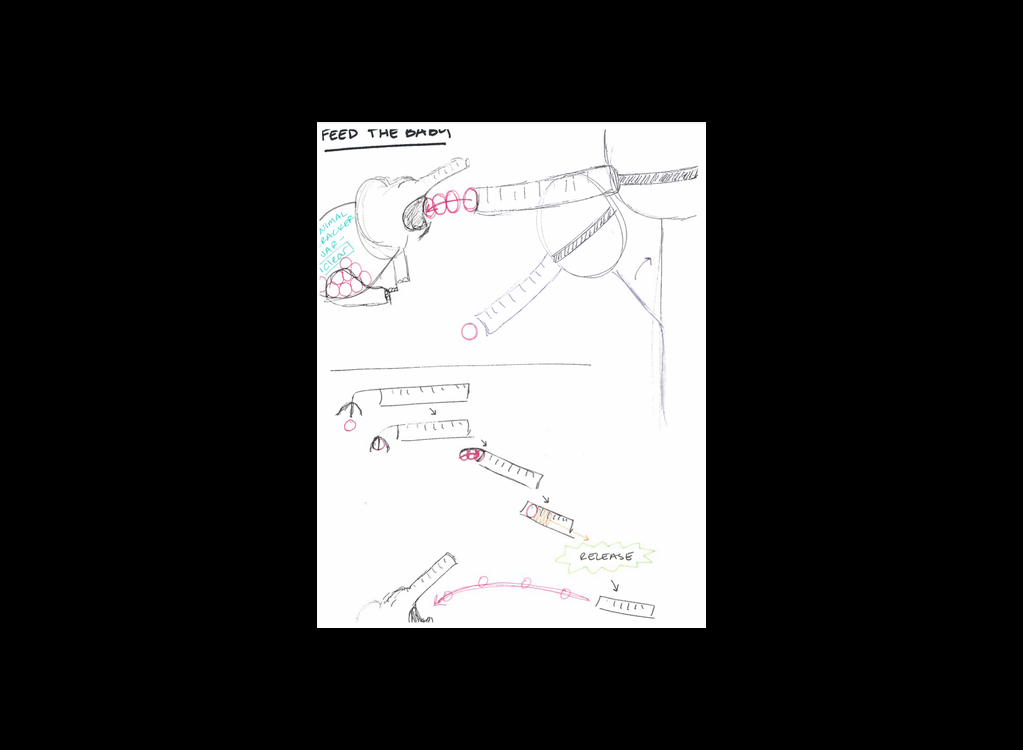 FEED THE BABY
NIMAL
RACKER
JAR -
(clear)
RELEASE